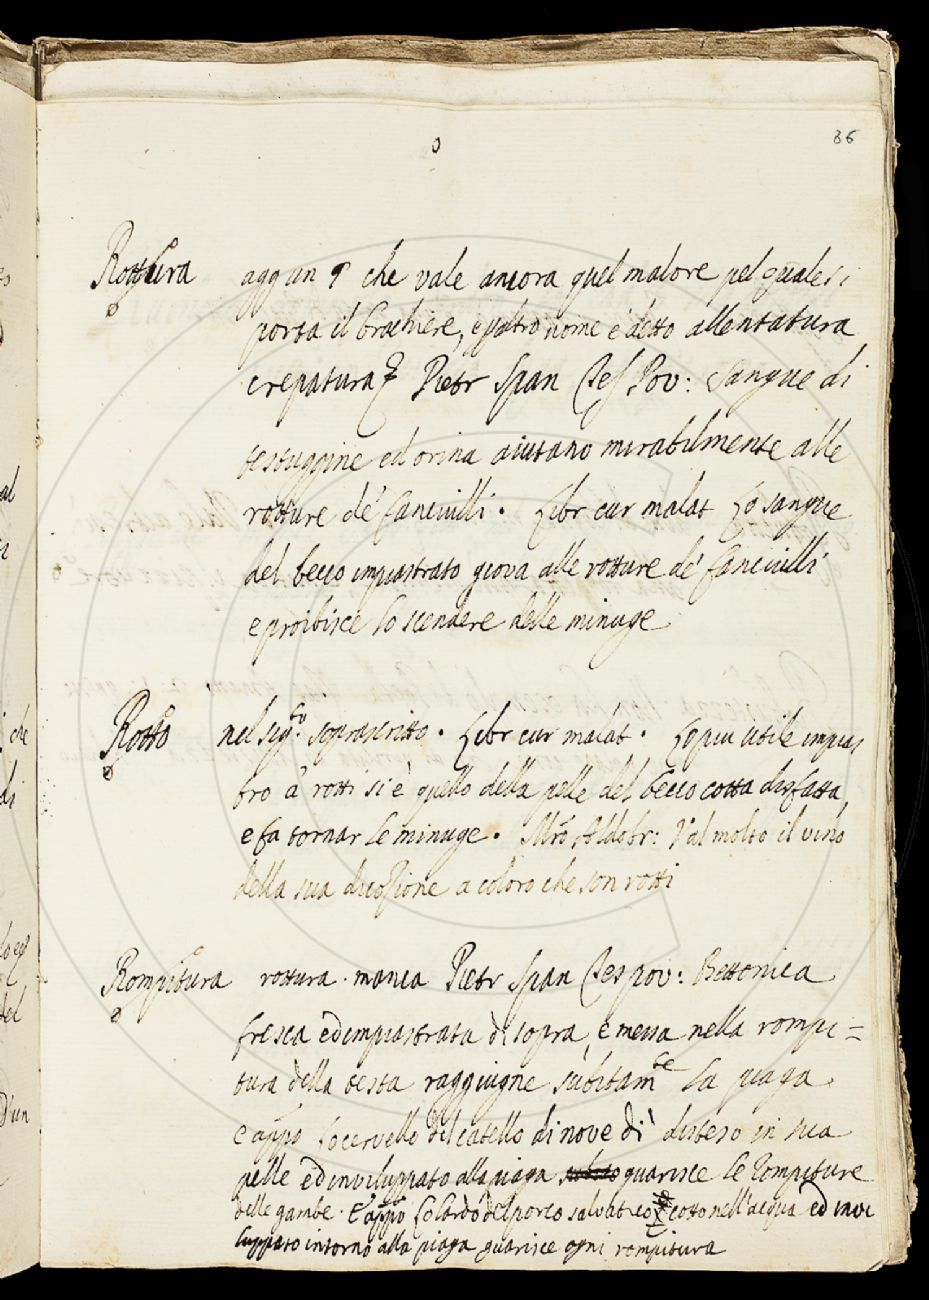 o
86
Rottura aggiun § che vale ancora quel malore pel quale si
porta il brachiere, e p altro nome è detto allentatura
crepatura Pietr Span Tes Pov: Sangue di
testuggine ed orina aiutano mirabilmente alle
rotture de' fanciulli. Libr cur malat Lo sangue
del becco impiastrato giova alle rotture de' fanciulli
e proibisce lo scendere delle minuge
Rotto nel sig.to soprascritto. Libr cur malat. Lo piu utile impias
tro à rotti si è quello della pelle del becco cotta disfatta,
e fa tornar le minuge. M.ro Aldobr: Val molto il vino
della sua dicozione a coloro che son rotti
Rompitura rottura. manca Pietr Span Tes pov: Bettonica
fresca ed impiastrata di sopra, e messa nella rompi=
tura della testa raggiugne subitam.te la piaga
E appo Lo cervello del catello di nove dì disteso in sua
pelle ed inviluppato alla piaga guarisce le rompiture
delle gambe. E appo Lo lardo del porco salvatico cotto nell'acqua ed invi
luppato intorno alla piaga guarisce ogni rompitura